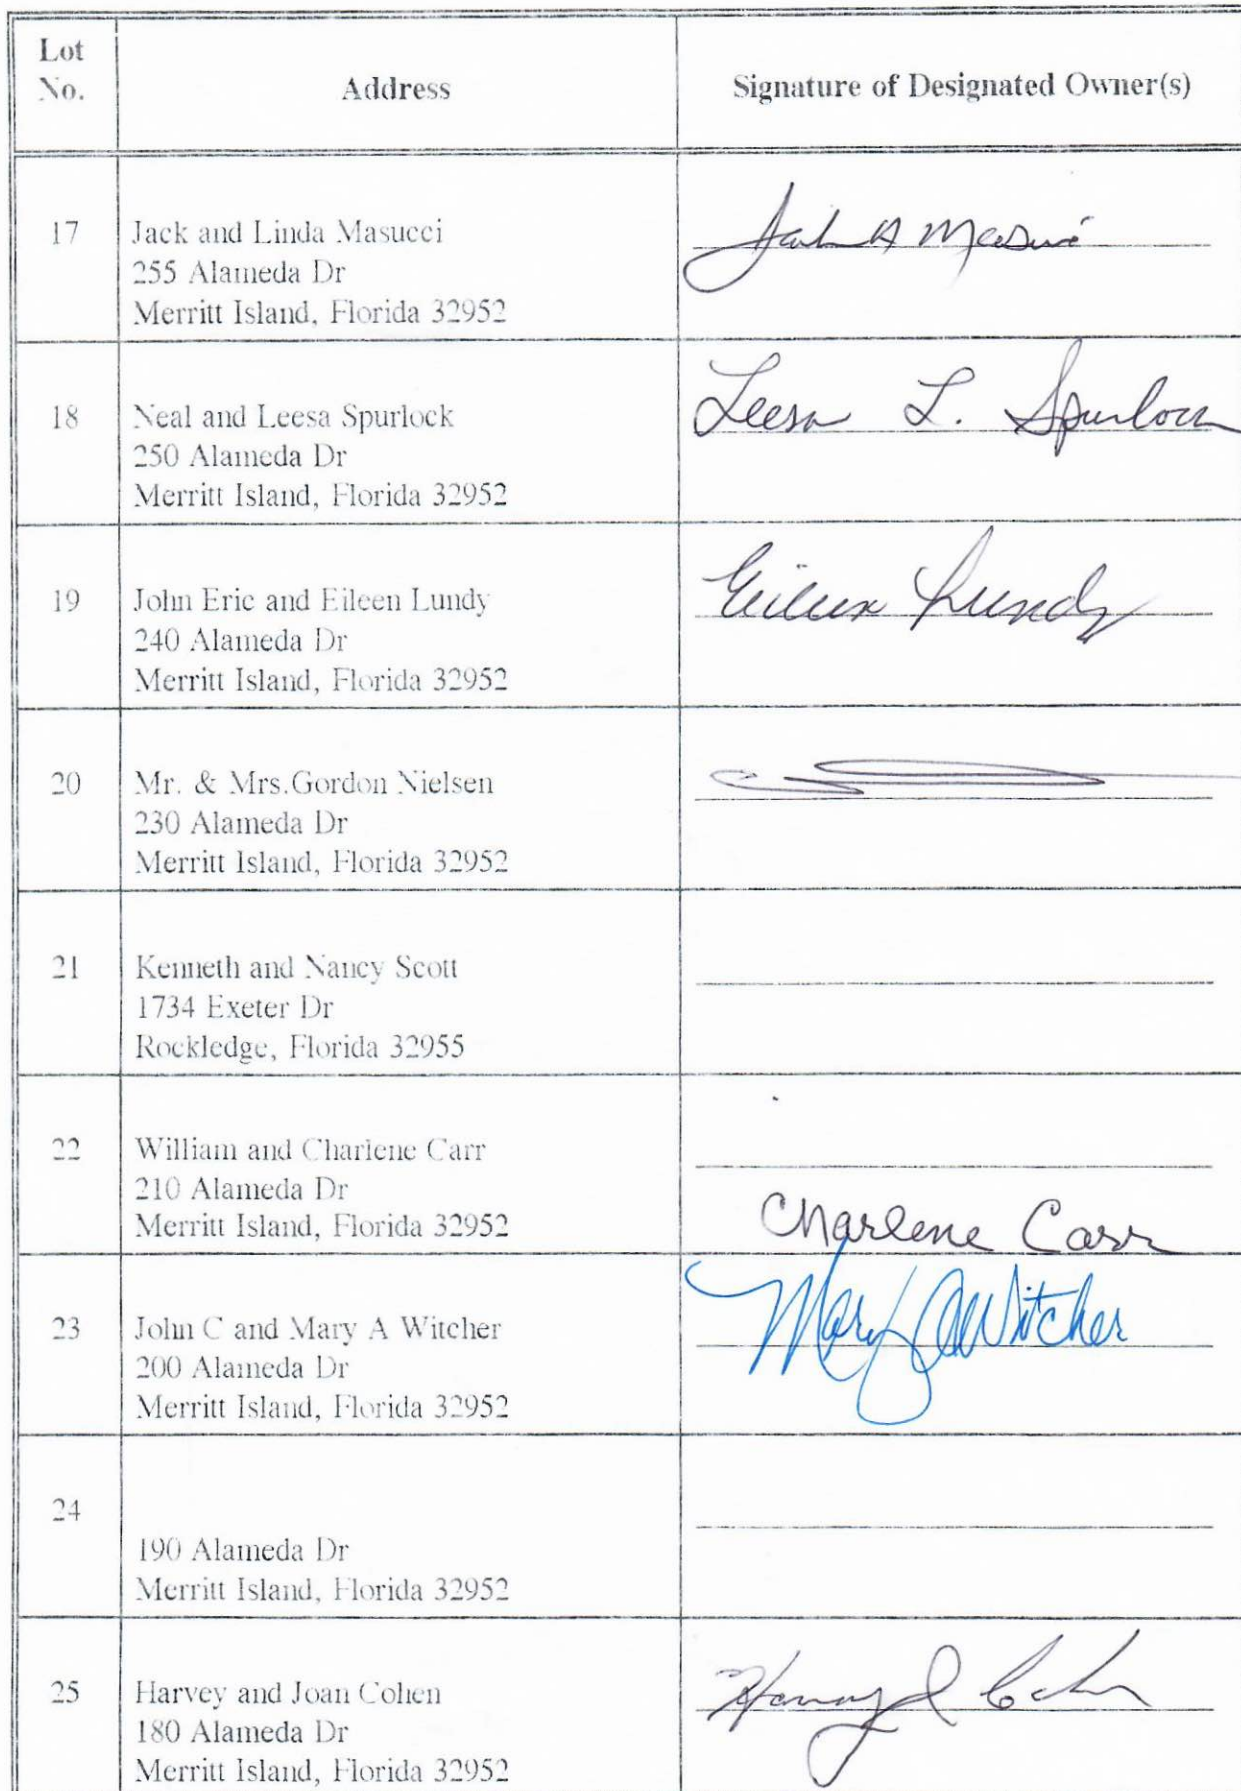 Lot
No.
Address
Signature of Designated Owner(s)
17
Jack and Linda Masucci
255 Alameda Dr
Merritt Island, Florida 32952
18
Neal and Leesa Spurlock
250 Alameda Dr
Merritt Island, Florida 32952
Leesa L. Spurlock
19
John Eric and Eileen Lundy
240 Alameda Dr
Merritt Island, Florida 32952
Eileen Lundy
20
Mr. & Mrs.Gordon Nielsen
230 Alameda Dr
Merritt Island, Florida 32952
21
Kenneth and Nancy Scott
1734 Exeter Dr
Rockledge, Florida 32955
22
William and Charlene Carr
210 Alameda Dr
Merritt Island, Florida 32952
Charlene Carr
23
John C and Mary A Witcher
200 Alameda Dr
Merritt Island, Florida 32952
Mary A Witcher
24
190 Alameda Dr
Merritt Island, Florida 32952
25
Harvey and Joan Cohen
180 Alameda Dr
Merritt Island, Florida 32952